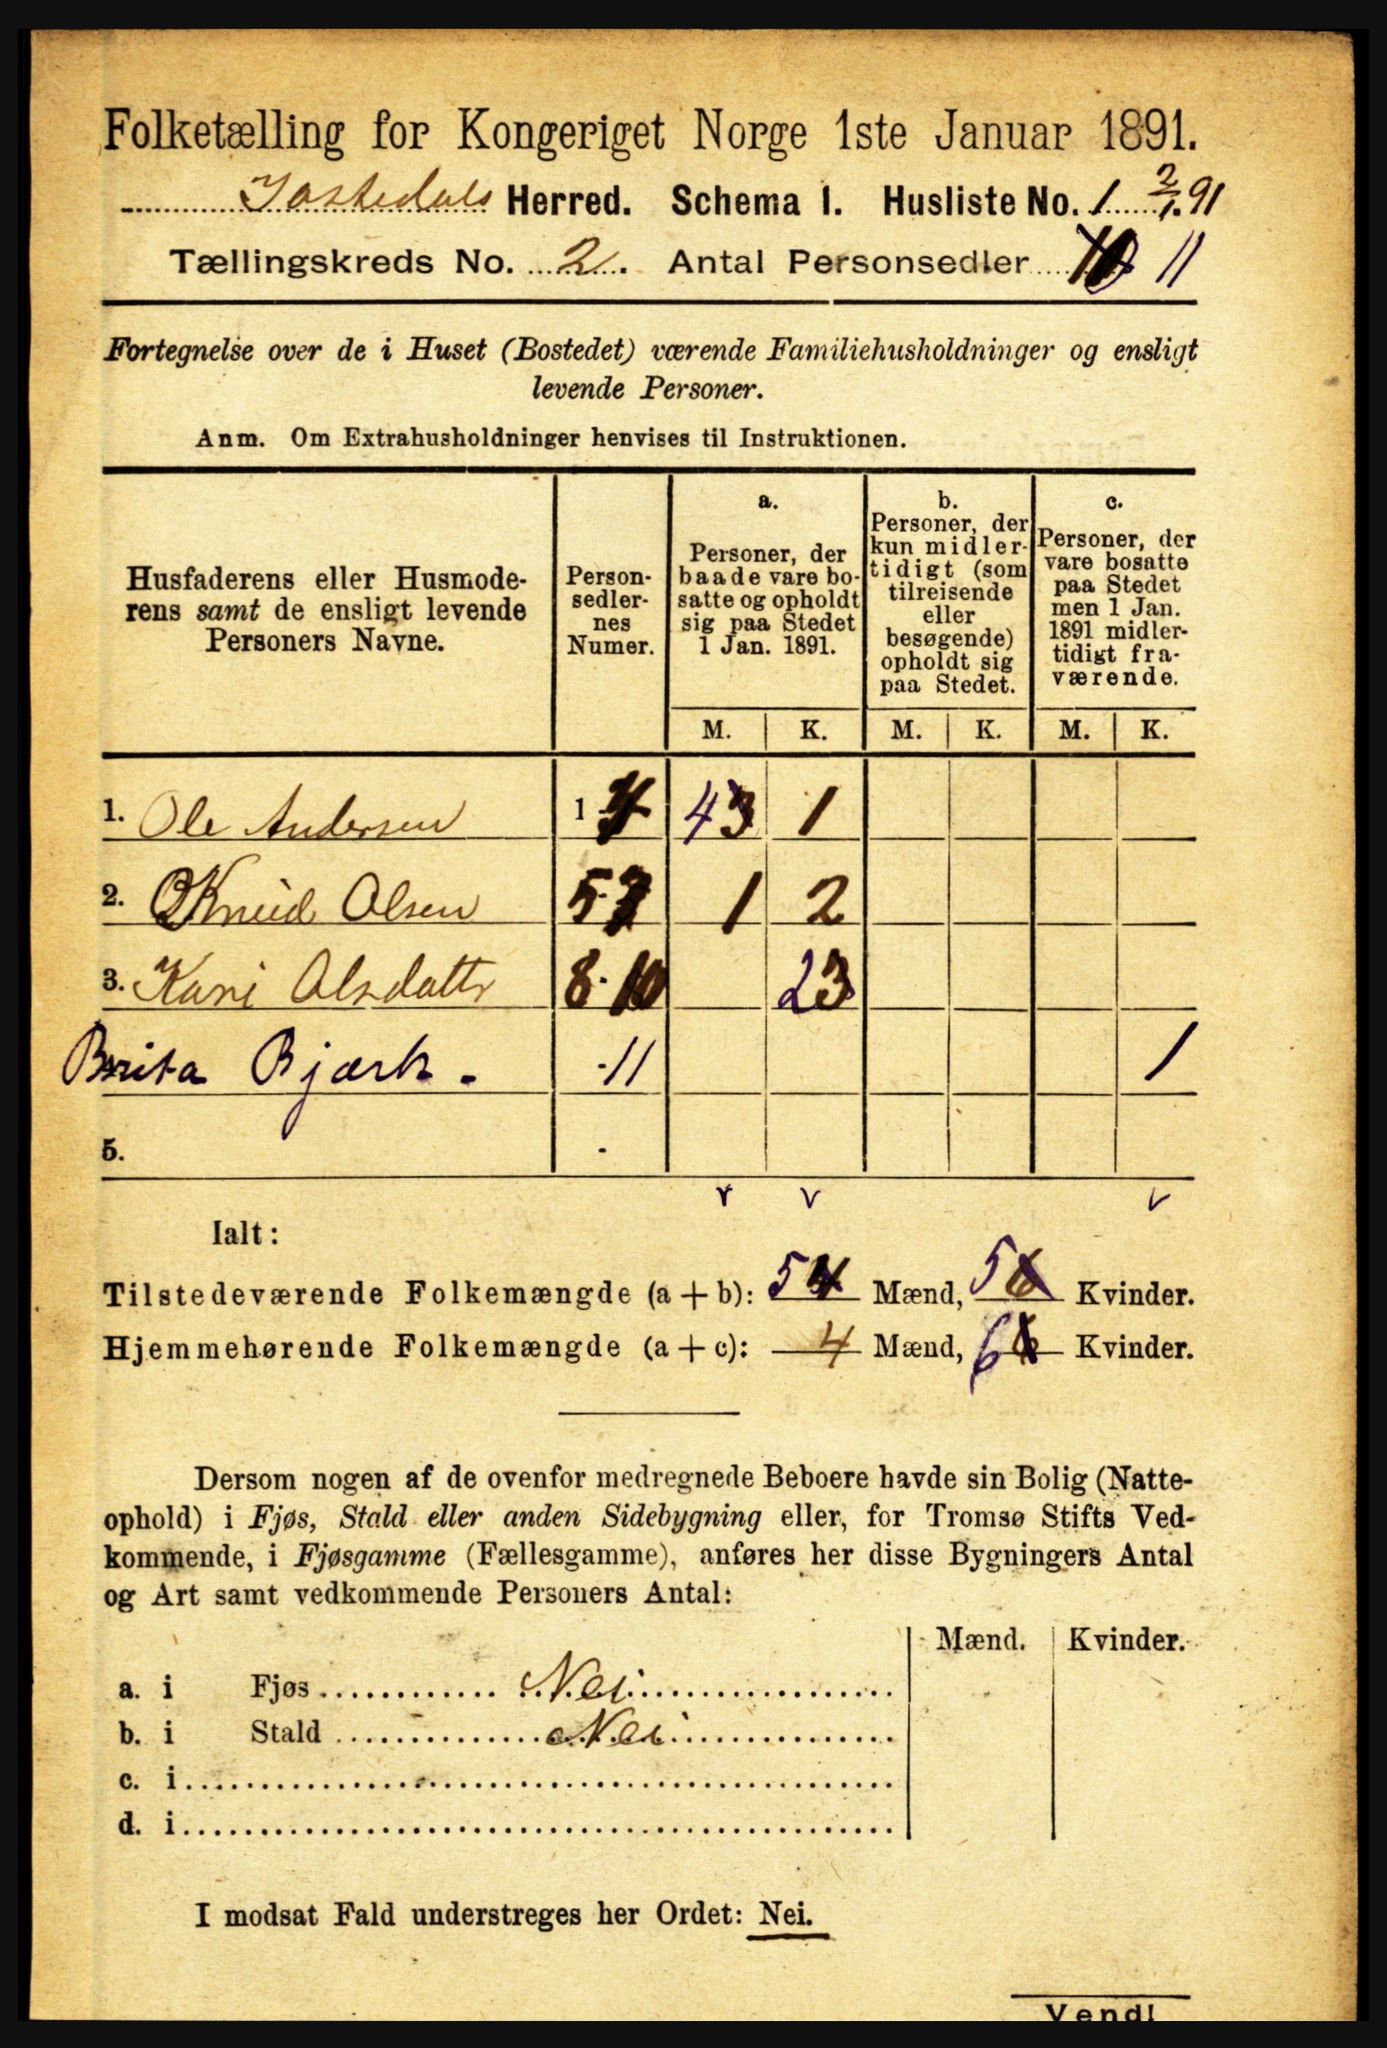 Folketælling for Kongeriget Norge 1ste Januar 1891.
Jostedals Herred. Schema 1. Husliste No. 1 2/1.91
Tællingskreds No. 2. Antal Personsedler 10 11
Fortegnelse over de i Huset (Bostedet) værende Familiehusholdninger og ensligt
levende Personer.
Anm. Om Extrahusholdninger henvises til Instruktionen.
Husfaderens eller Husmode-
rens samt de ensligt levende
Personers Navne.
Person-
sedler-
nes
Numer.
a.
Personer, der
baade vare bo-
satte og opholdt
sig paa Stedet
1 Jan. 1891.
b.
Personer, der
kun midler-
tidigt (som
tilreisende
eller
besøgende)
opholdt sig
paa Stedet.
c.
Personer, der
vare bosatte
paa Stedet
men 1 Jan.
1891 midler-
tidigt fra-
værende.
M. K. M. K. M. K.
1. Ole Andersen 1 - 4 3 1
2. Knud Olsen 5 - 7 1 2
3. Kari Olsdattr 8 - 10 2 3
Brita Bjærk - 11 1
5. -
Ialt:
Tilstedeværende Folkemængde (a + b): 5 4 Mænd, 5 6 Kvinder.
Hjemmehørende Folkemængde (a + c): 4 Mænd, 6 6 Kvinder.
Dersom nogen af de ovenfor medregnede Beboere havde sin Bolig (Natte-
ophold) i Fjøs, Stald eller anden Sidebygning eller, for Tromsø Stifts Ved-
kommende, i Fjøsgamme (Fællesgamme), anføres her disse Bygningers Antal
og Art samt vedkommende Personers Antal:
Mænd. Kvinder.
a. i Fjøs Nei
b. i Stald Nei
c. i
d. i
I modsat Fald understreges her Ordet: Nei.
Vend!